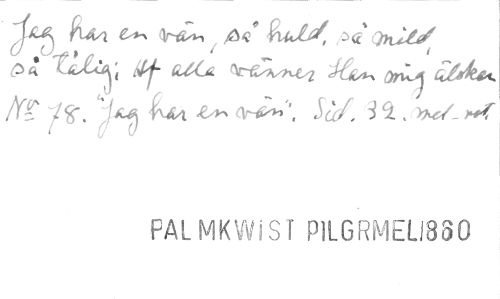 Jag har en vän, så huld, så mild,
så tålig; Af alla vänner Han mig älskar
No 78. "Jag har en vän". Sid. 32. mel-not.
PALMKWIST PILGRMEL1860